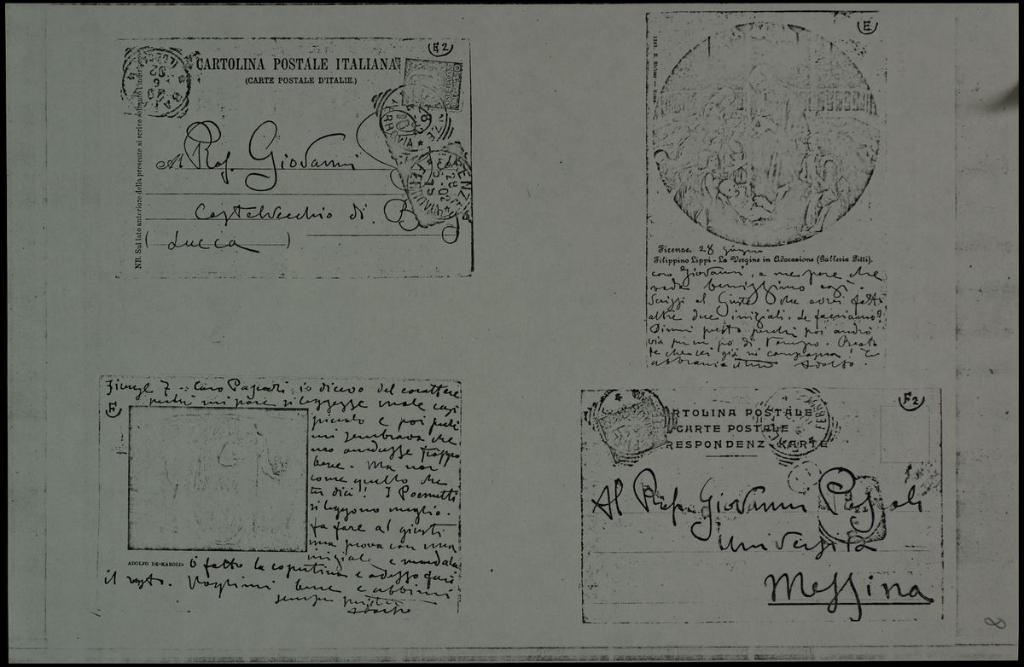 E2
CARTOLINA POSTALE ITALIANA
(CARTE POSTALE D'ITALIE)
NB. Sul lato anteriore della presente si scrive
Al Prof. Giovanni
Castelvecchio di
(Lucca)
E
Firenze 28 giugno
Filippino Lippi - La Vergine in Adorazione (Galleria Pitti).
caro Giovanni, a me pare che
vada benissimo così.
Scrissi al Giusti che avrei fatto
altre due iniziali. Le facciamo?
Dimmi presto perchè poi andrò
via per un po' di tempo. Beato
te che sei già in campagna!
abbraccia Adolfo.
F
Firenze 7 Caro Pascoli io dicevo del carattere
perchè mi pare si leggesse male così
piccolo e poi
mi sembrava che
non andasse troppo
bene. Ma non
come quello che
tu dici! I Poemetti
si leggono meglio.
fa fare al Giusti
una prova con una
iniziale e mandala
ADOLFO DE-KAROLIS
ò fatto la copertina e adesso farò
il resto. Vogliimi bene e abbimi
sempre
Adolfo
F2
RTOLINA POSTALE
CARTE POSTALE
RESPONDENZ-KARTE
Al Prof. Giovanni Pascoli
Università
Messina
8